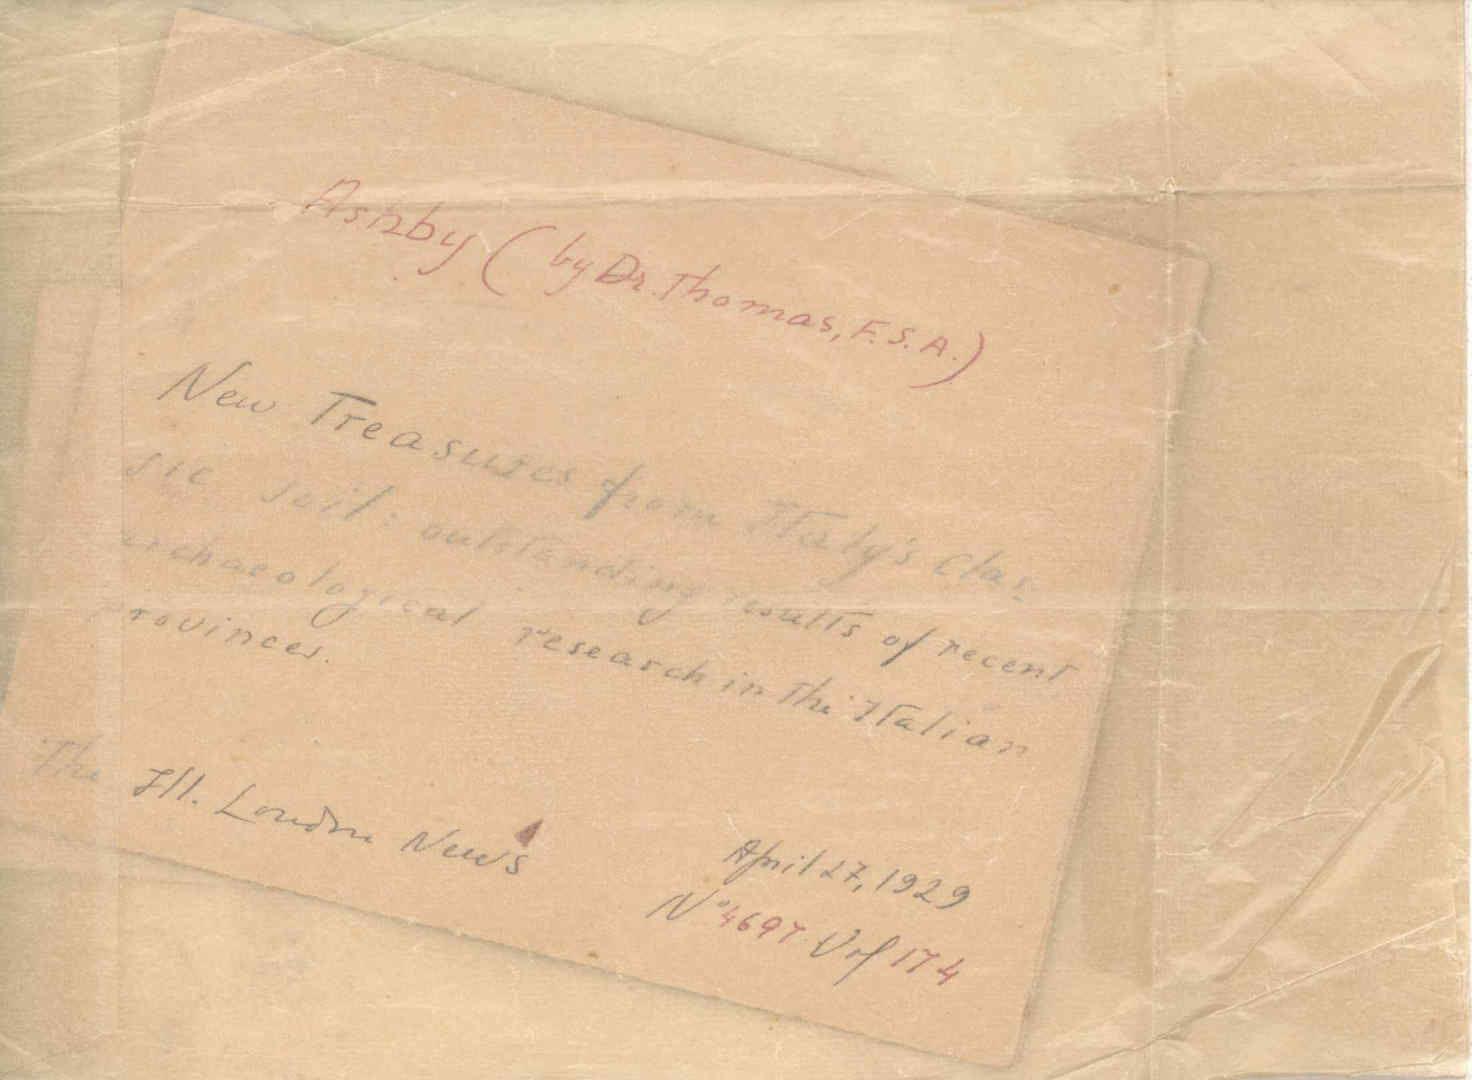 Ashby (by Dr. Thomas, F.S.A.)
New Treasures from Italy's Clas-
sic soil: outstanding results of recent
archaeological research in the Italian
provinces.
The Ill. London News
April 27, 1929
N° 4697 Vol 174